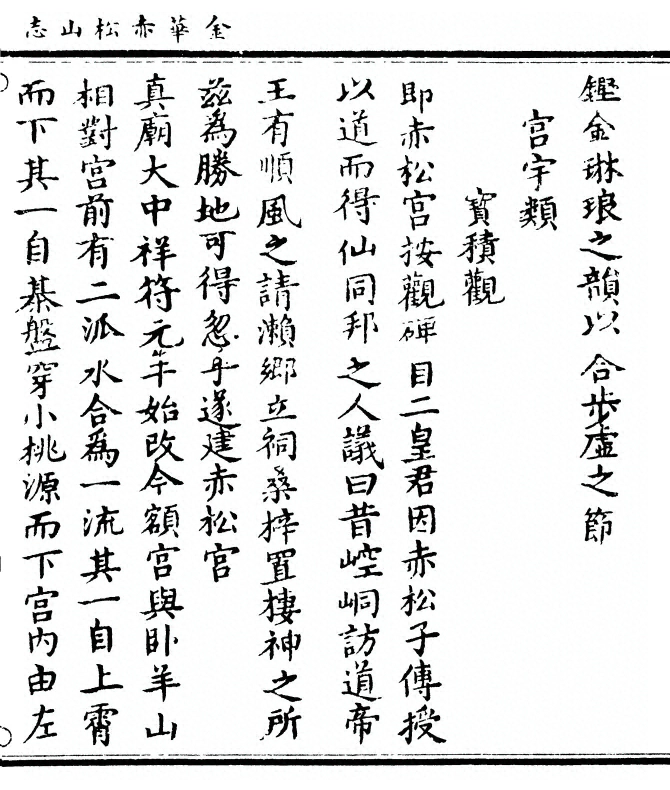 金華赤松山志
鏗金琳琅之韻以合步虛之節
宮宇類
寶積觀
即赤松宮按觀碑目二皇君因赤松子傳授
以道而得仙同邦之人議曰昔崆峒訪道帝
王有順風之請瀨鄉立祠桑梓置棲神之所
茲為勝地可得忽乎遂建赤松宮
真廟大中祥符元年始改今額宮與卧羊山
相對宮前有二派水合為一流其一自上霄
而下其一自棊盤穿小桃源而下宮內由左